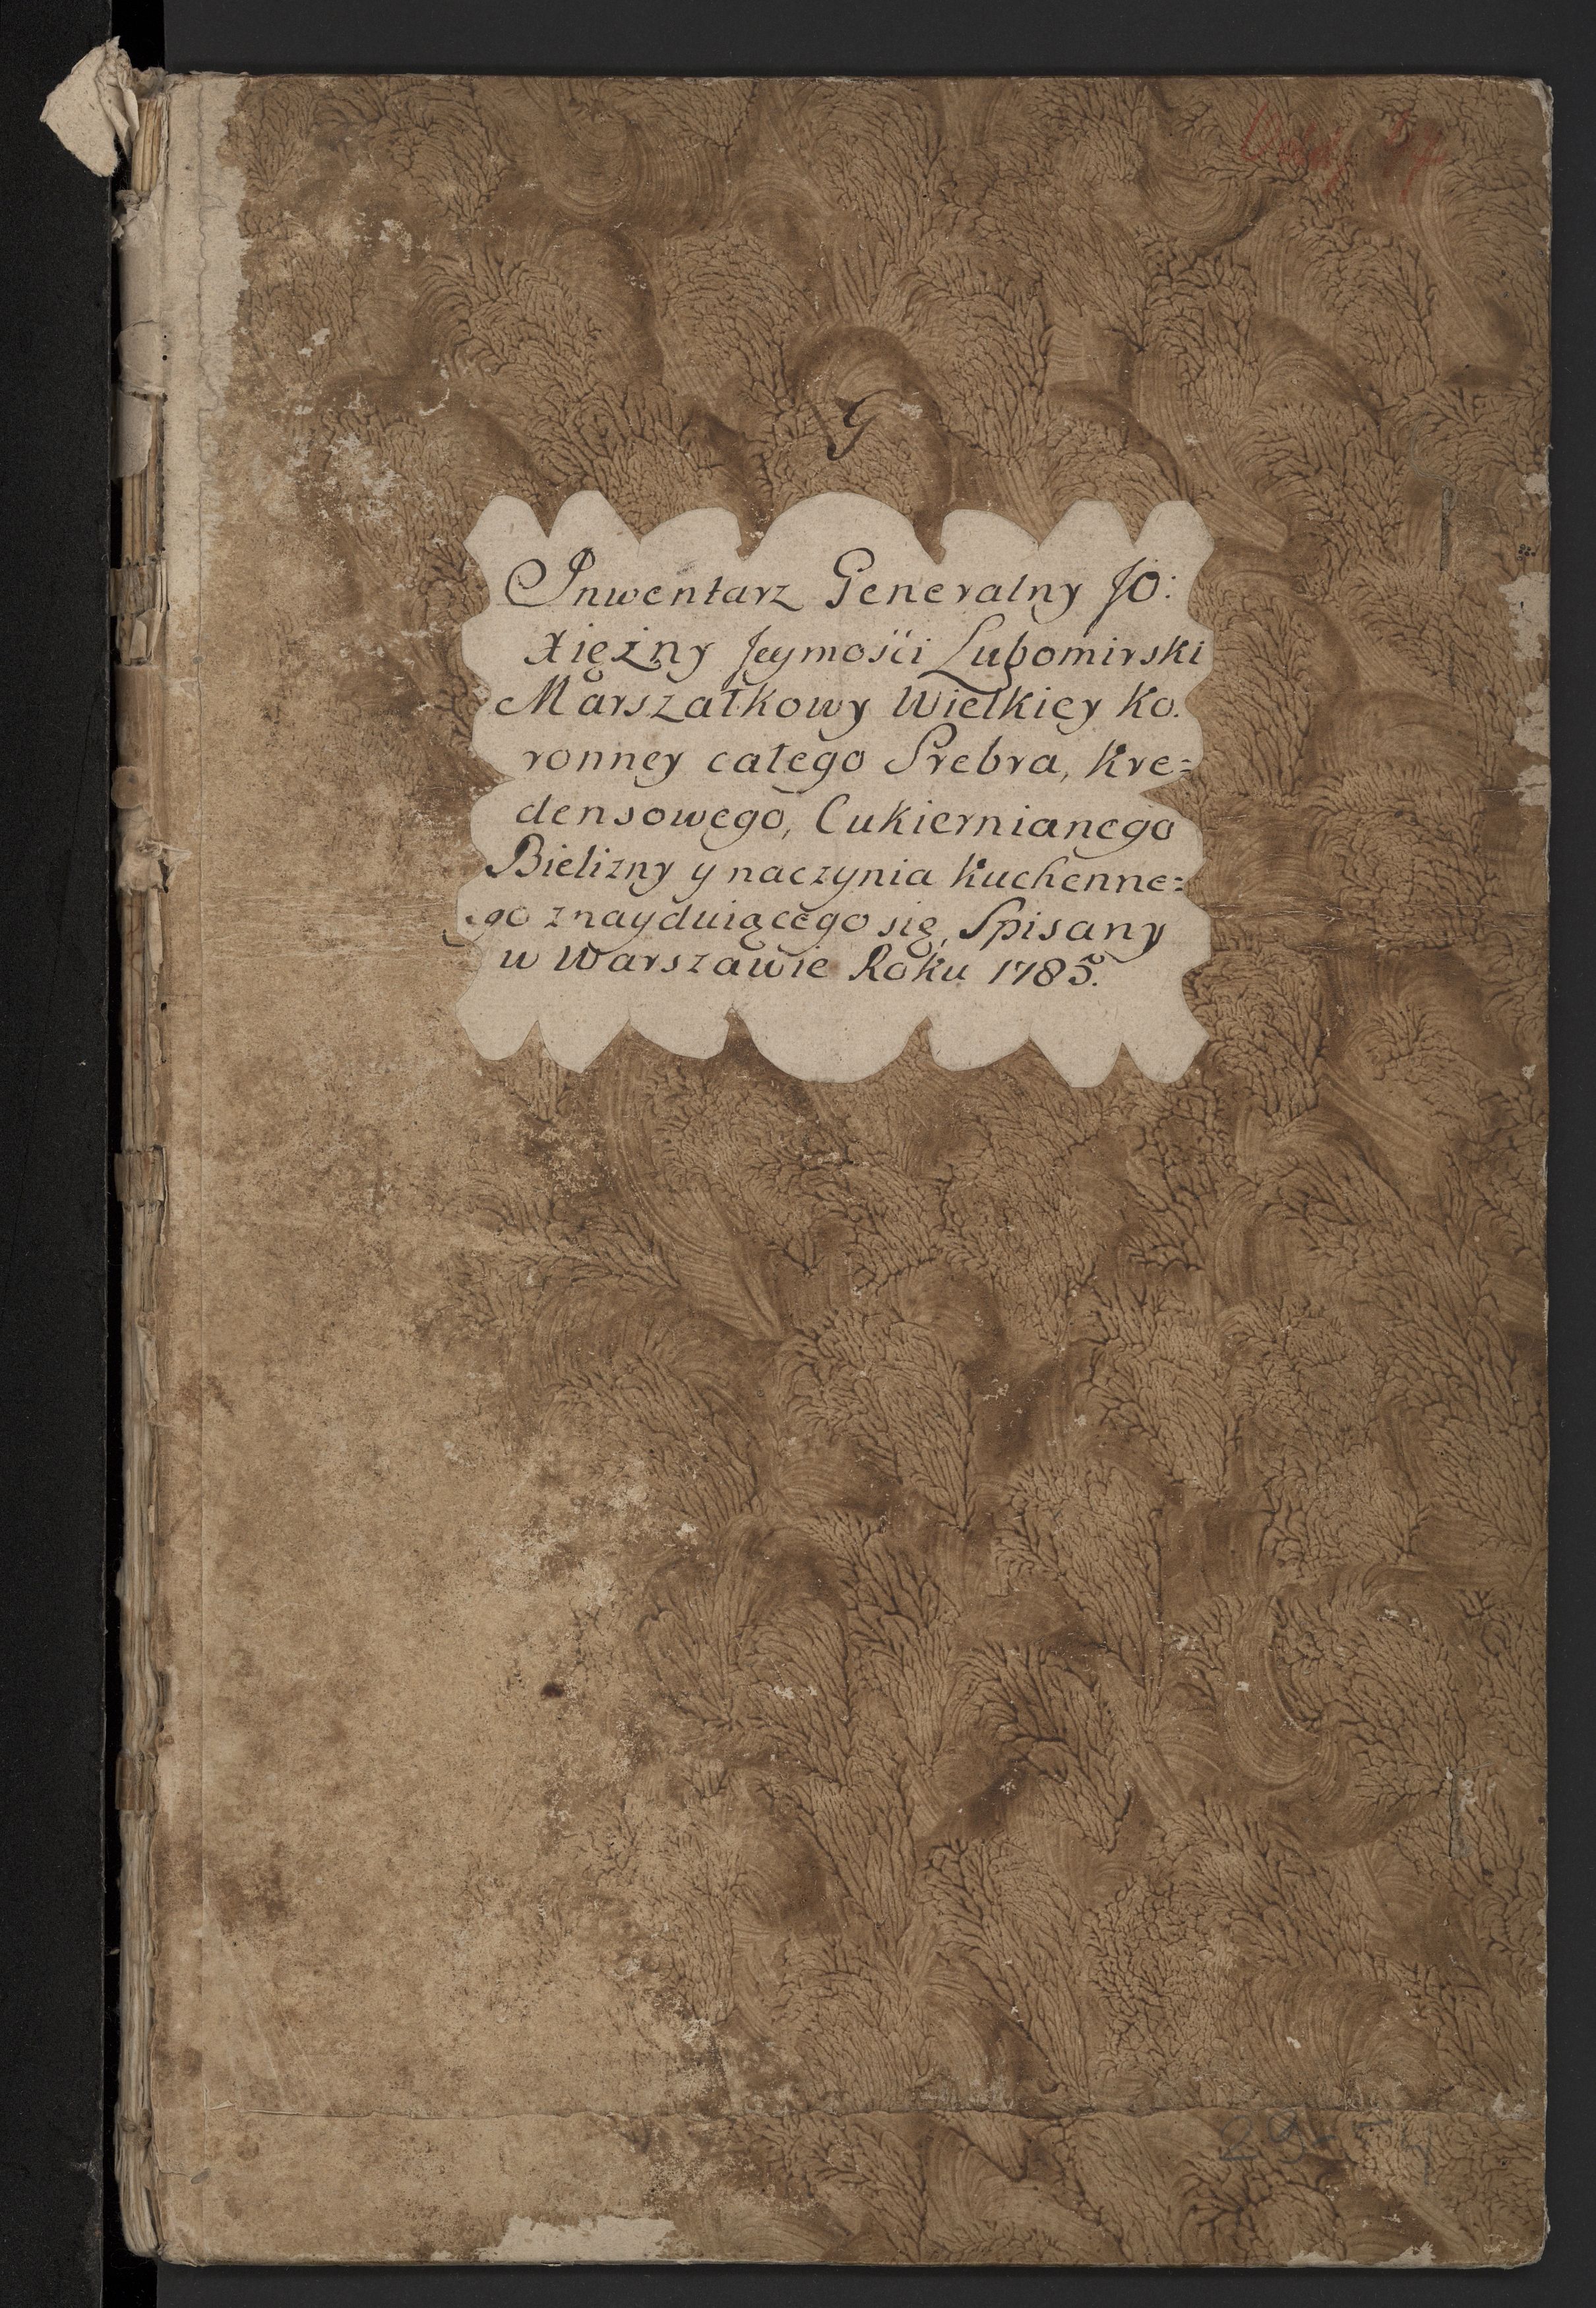 G
Inwentarz Generalny JO:
Xiężny Jeymości Lubomirski
Marszałkowy Wielkiey Ko.
ronney całego Srebra, Kre=
densowego, Cukiernianego
Bielizny y naczynia Kuchenne=
go znayduiącego się, Spisany
w Warszawie Roku 1785.